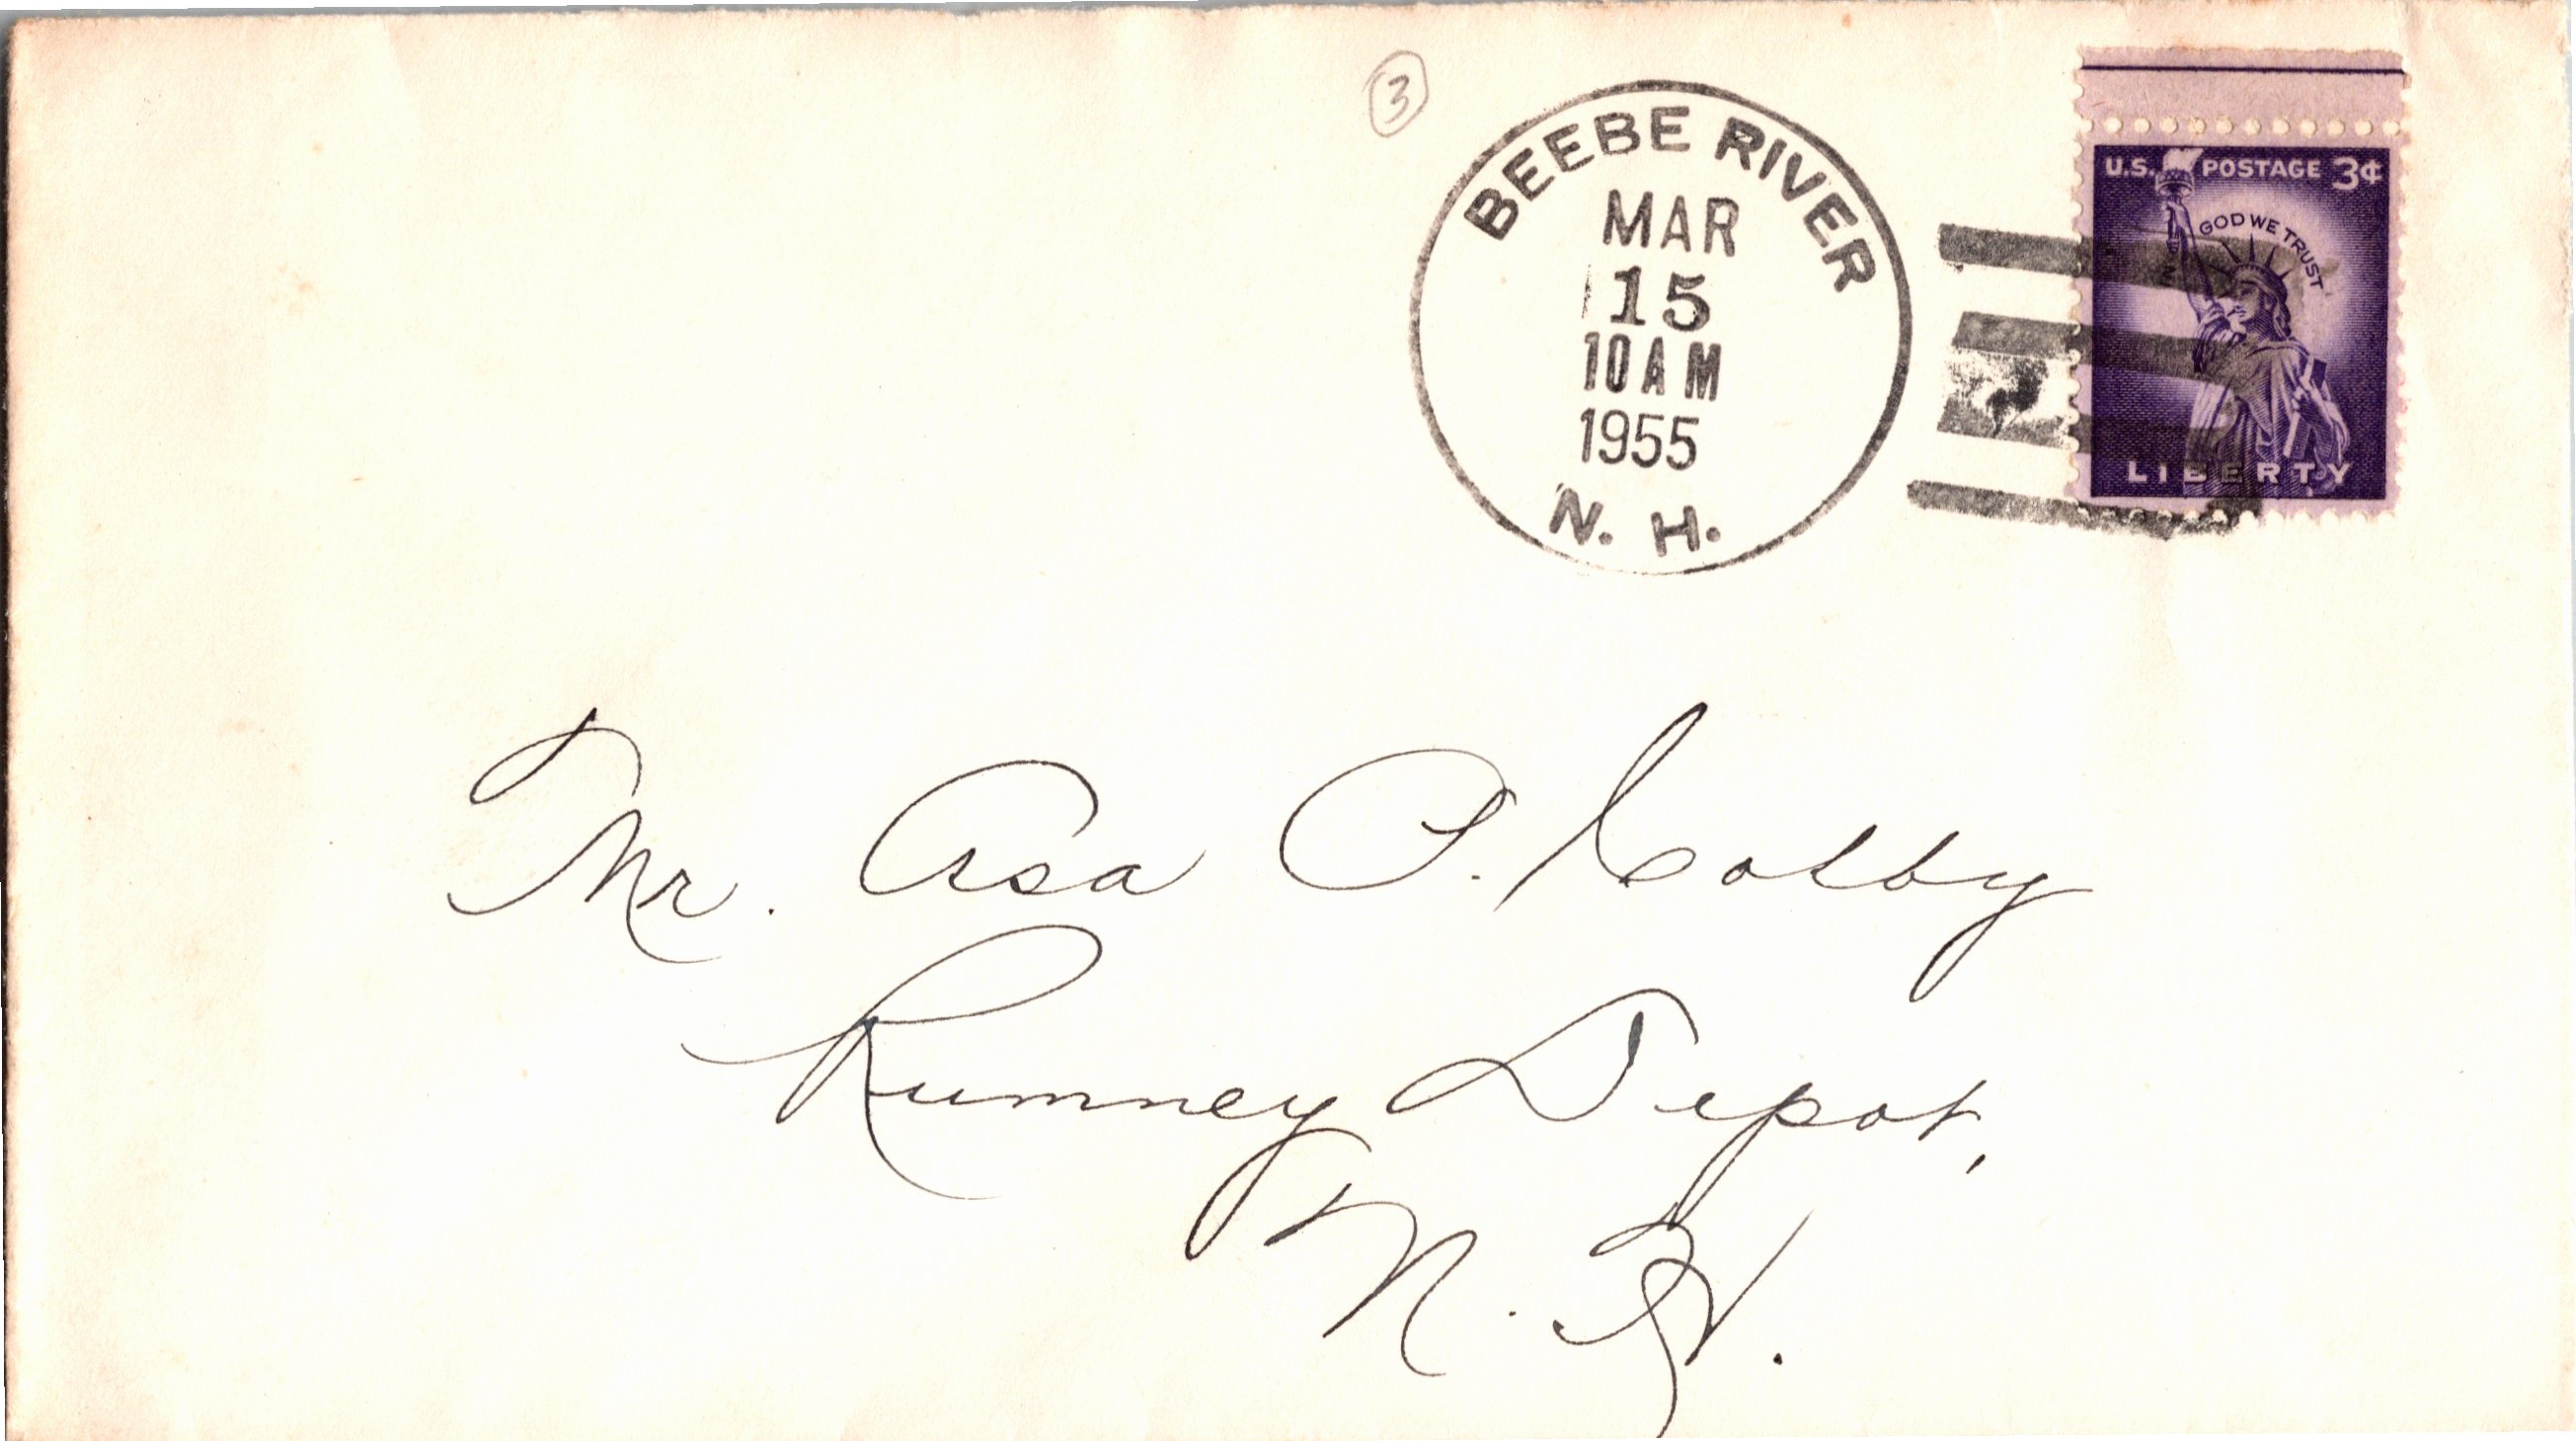 3
BEEBE RIVER
MAR
15
10 AM
1955
N. H.
U.S. POSTAGE 3¢
IN GOD WE TRUST
LIBERTY
Mr. Asa P. Colby
Rumney Depot,
N. H.